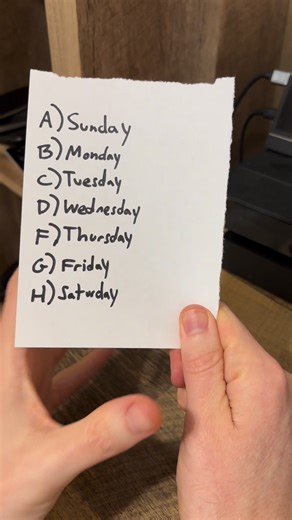 A) Sunday
B) Monday
C) Tuesday
D) Wednesday
F) Thursday
G) Friday
H) Saturday